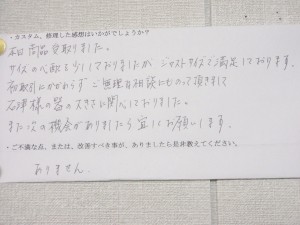 ・カスタム、修理した感想はいかがでしょうか?
本日商品受取りました。
サイズの心配を少しておりましたが ジャストサイズで満足しております。
初取引にかかわらず ご無理な相談にものって頂きまして
石津様の器の大きさに関べておりました。
また次の機会がありましたら宜しくお願いします。
・ご不満な点、または、改善すべき事が、ありましたら是非教えてください。
ありません。